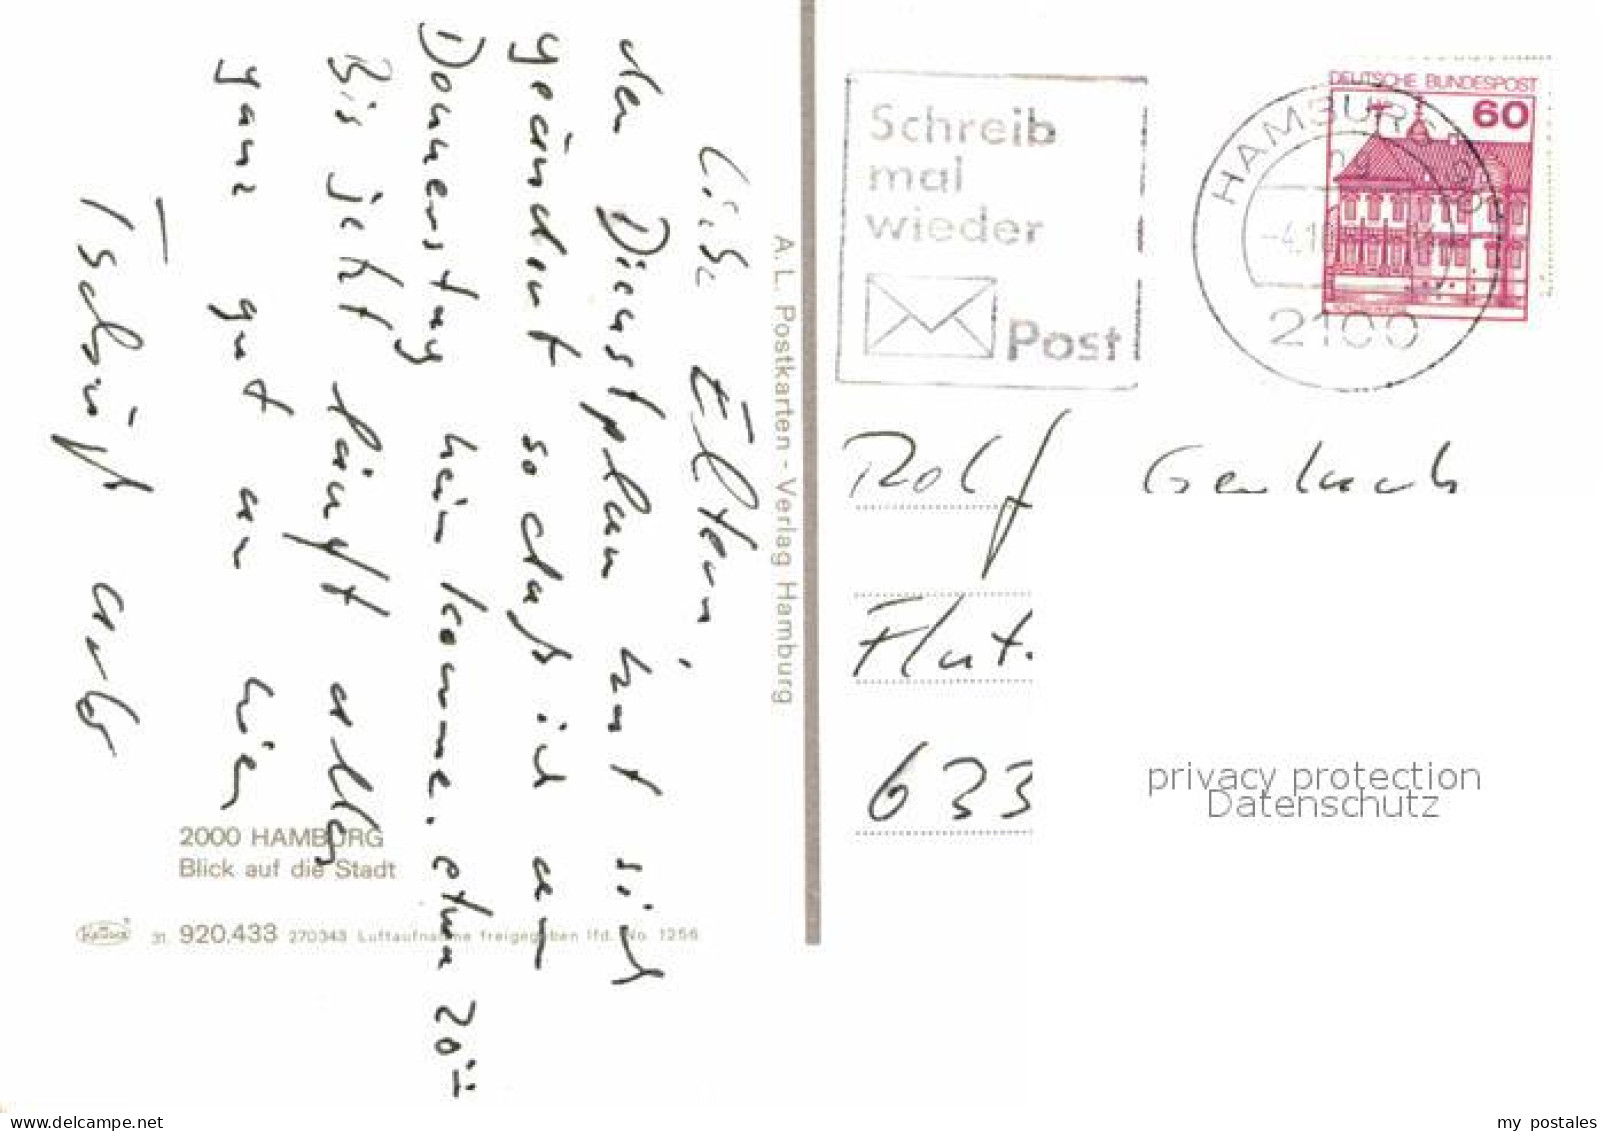 Liebe Eltern,
der Dienstplan hat sich
geändert so daß ich am
Donnerstag heim komme. etwa 20 00
Bis jetzt läuft alles
ganz gut an hier
Tschüß
A. L. Postkarten - Verlag Hamburg
2000 HAMBURG
Blick auf die Stadt
31. 920.433 270343 Luftaufnahme freigegeben lfd. No. 1256
Schreib
mal
wieder
Post
HAMBURG
2100
DEUTSCHE BUNDESPOST
60
Rolf
Flat.
633
privacy protection
Datenschutz
www.delcampe.net
my_postales